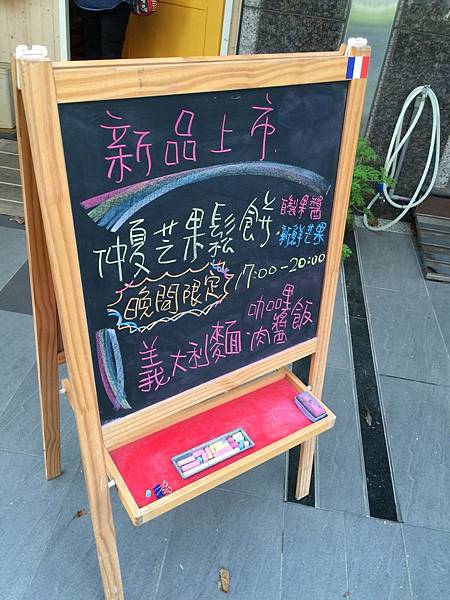 新品上市
仲夏芒果鬆餅
自製果醬
新鮮芒果
晚間限定 17:00-20:00
義大利麵
咖哩飯
肉醬